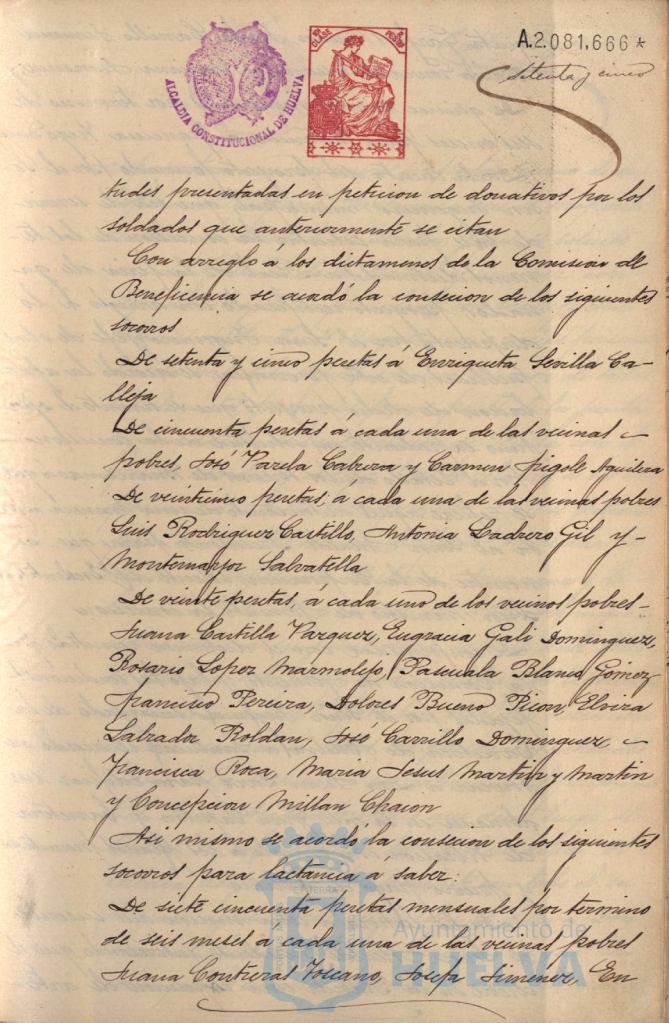 A.2.081.666*
Setenta y cinco
ALCALDIA CONSTITUCIONAL DE HUELVA
CLASE
tudes presentadas en peticion de donativos por los
soldados que anteriormente se citan
Con arreglo á los dictamenes de la Comision de
Beneficencia se acordó la consecion de los siguientes
socorros
De setenta y cinco pesetas á Enriqueta Sevilla Ca-
lleja
De cincuenta pesetas á cada una de las vecinas
pobres, José Varela Cabrera y Carmen Aguilera
De veinticinco pesetas, á cada una de las vecinas pobres
Luis Rodriguez Castillo, Antonia Ladrero Gil y-
Montemayor Salvatella
De veinte pesetas, á cada uno de los vecinos pobres-
Juana Castilla Vazquez, Eugracia Gali Dominguez,
Rosario Lopez Marmolejo, Pascuala Blanco Gomez
Francisco Pereira, Dolores Bueno Picon, Elvira
Salvador Roldan, José Carrillo Dominguez
Francisca Roca, Maria Jesus Martin y Martin
y Concepcion Millan Chacon
Asi mismo se acordó la consecion de los siguientes
socorros para lactancia á saber:
De siete cincuenta pesetas mensuales por termino
de seis meses á cada una de las vecinas pobres
Juana Contreras Toscano, Josefa Jimenez, En
Ayuntamiento de
HUELVA